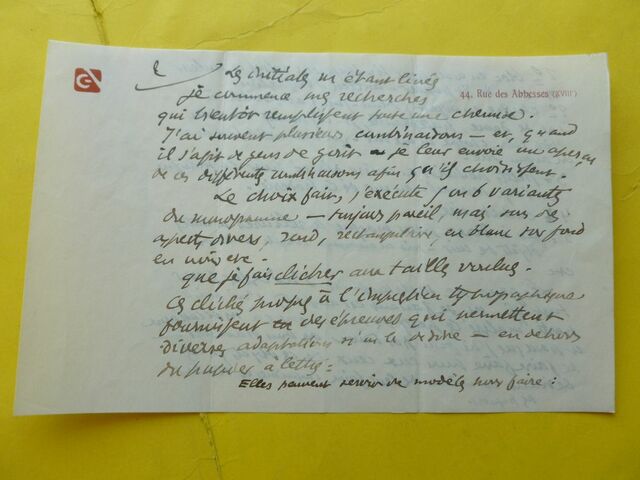 2
Les initiales m'étant livrés
44, Rue des Abbesses (XVIIIe)
je commence mes recherches
qui bientôt remplissent toute une chemise.
J'ai souvent plusieurs combinaisons — et, quand
il s'agit de gens de goût — je leur envoie un aperçu
de ces différentes combinaisons afin qu'ils choisissent.
Le choix fait, j'exécute 5 ou 6 variantes
du monogramme — toujours pareil, mais sur des
aspects divers, rond, rectangulaire, en blanc sur fond
en noir etc.
que je fais clicher aux tailles voulues.
Ces clichés propres à l'impression typographique
fournissent des épreuves qui permettent
diverses adaptations si on le désire — en dehors
du papier à lettres :
Elles peuvent servir de modèle pour faire :